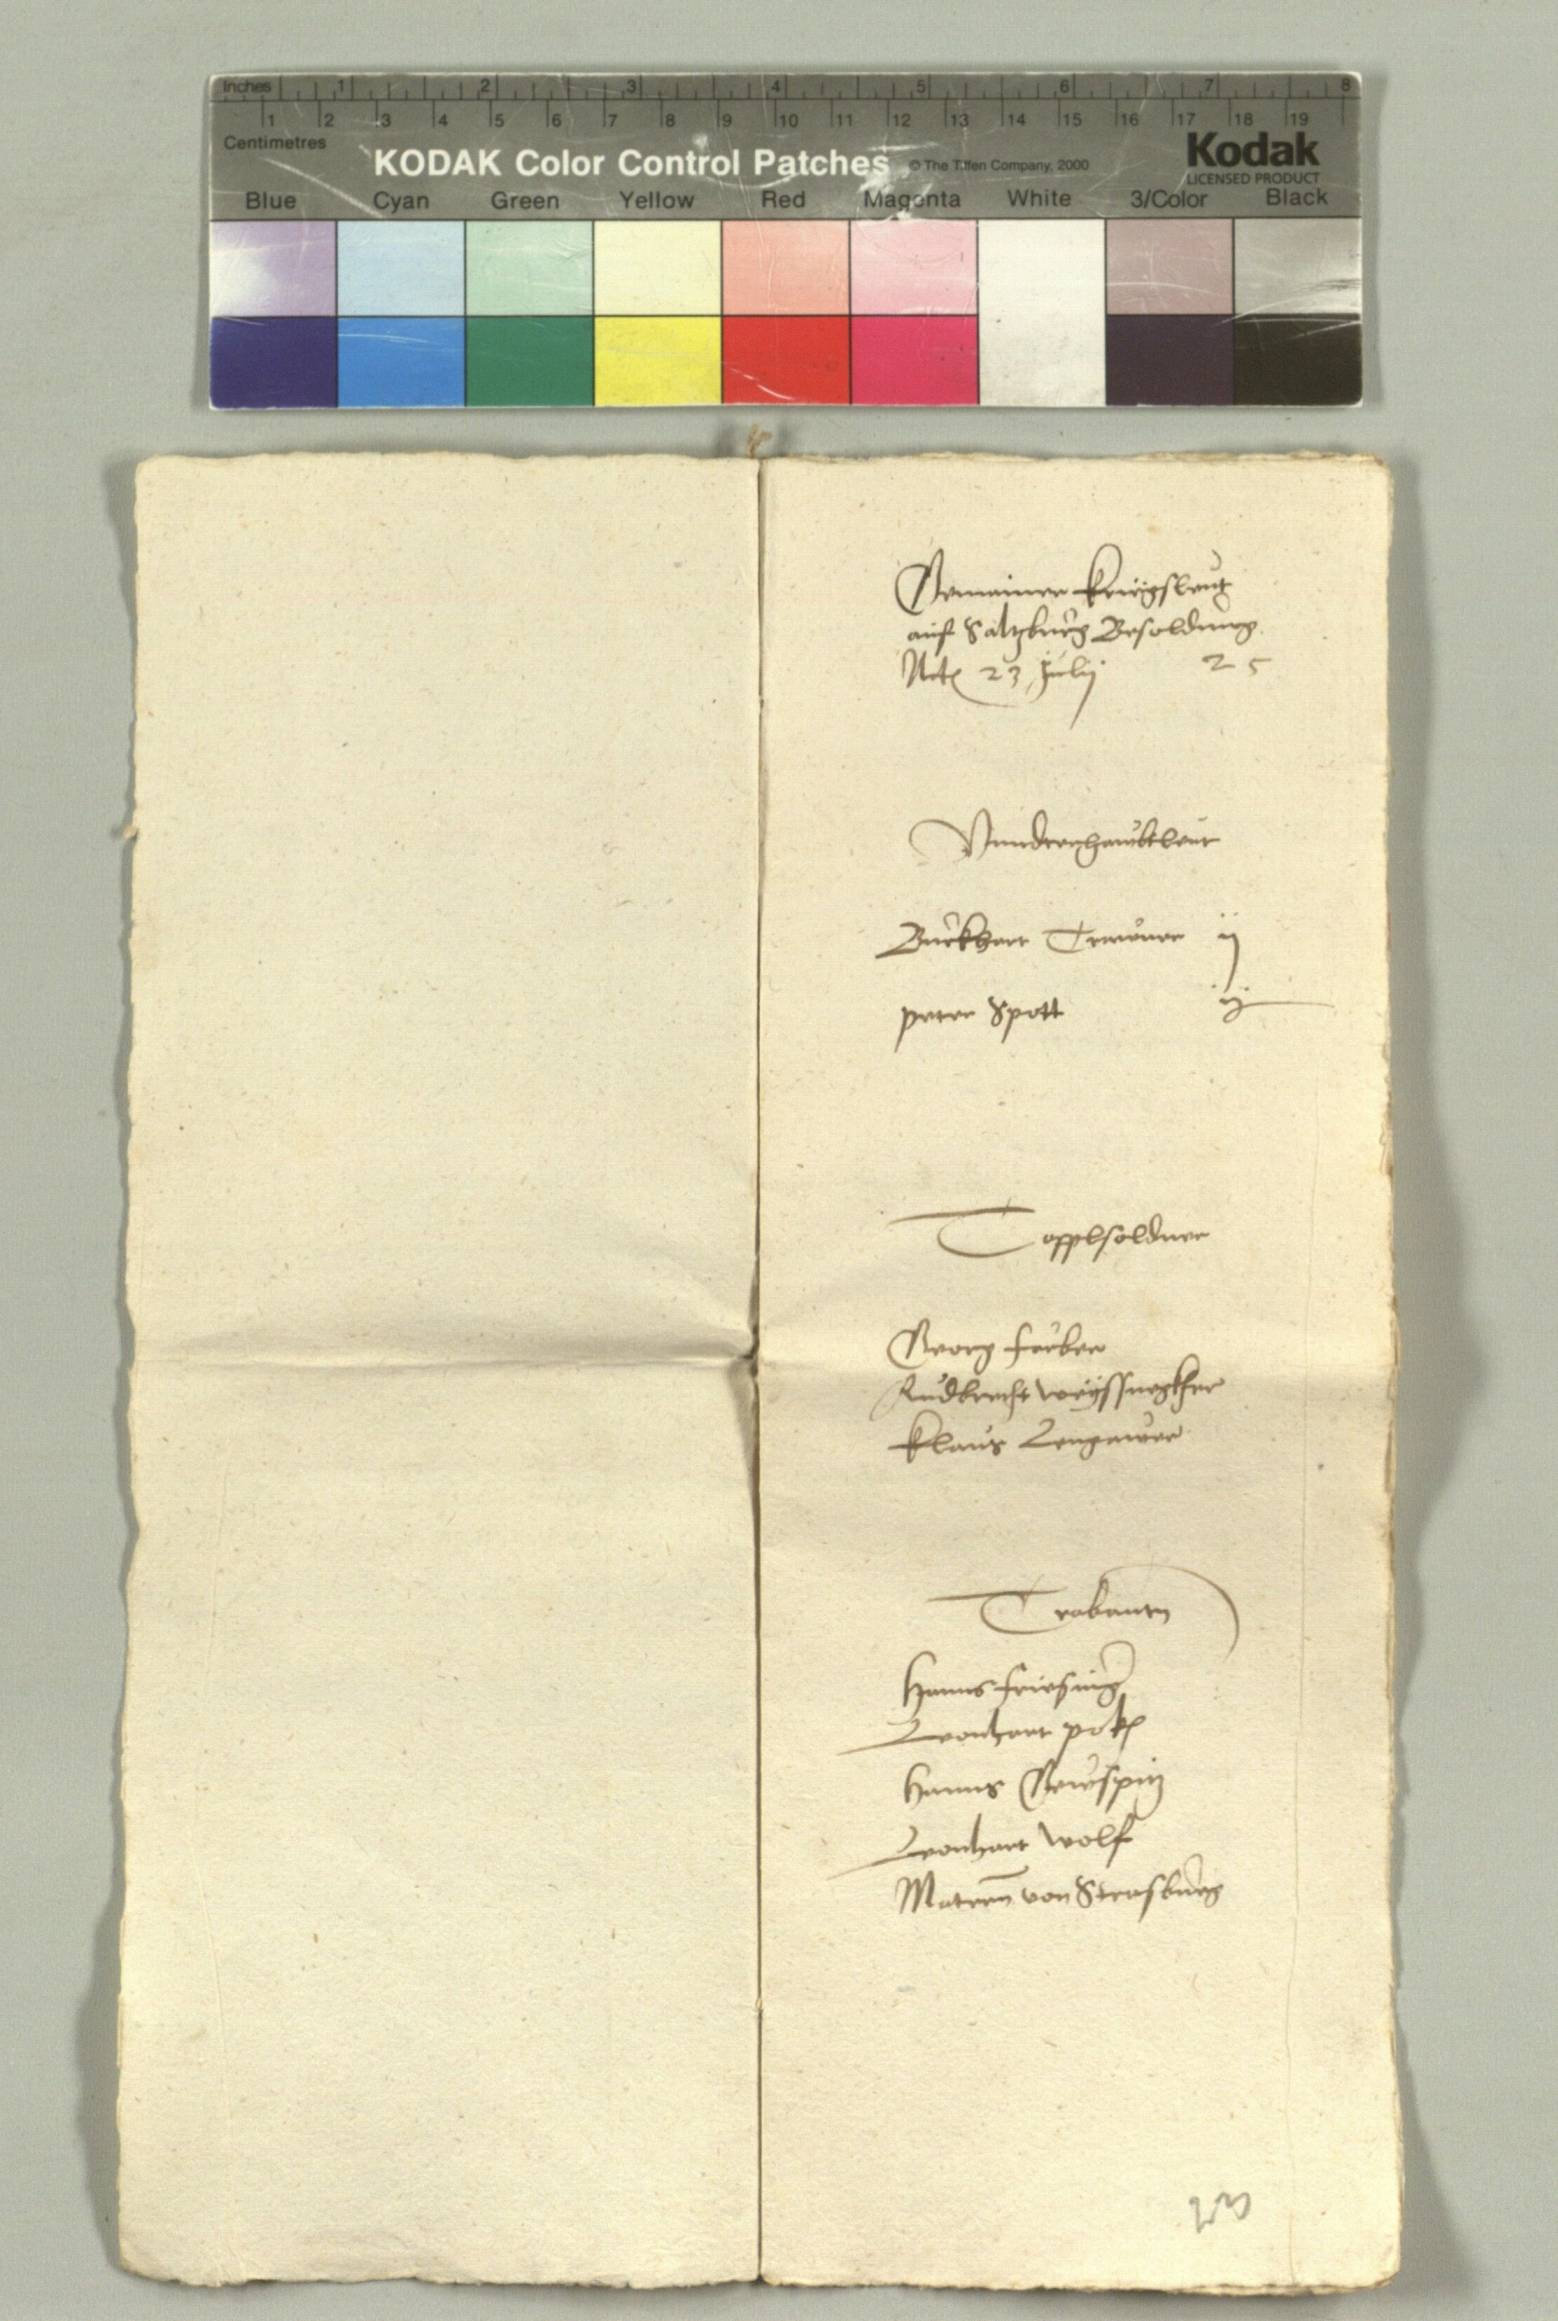 Inches 1 2 3 4 5 6 7 8
1 2 3 4 5 6 7 8 9 10 11 12 13 14 15 16 17 18 19
Centimetres
KODAK Color Control Patches © The Tiffen Company, 2000 Kodak
LICENSED PRODUCT
Blue Cyan Green Yellow Red Magenta White 3/Color Black
Gemainer kriegsleut
auf Saltzburg Besoldung
Act 23 Julij 25
Vnnderhaubtleut
Burkhart ij
peter Spott ij
Topplsoldner
Georg farber
Rudbrecht
Klaus Lengawer
Trabantn
Hanns friesing
Leonhart
Hanns Newspitz
Leonhart wolf
Matern von Strasburg